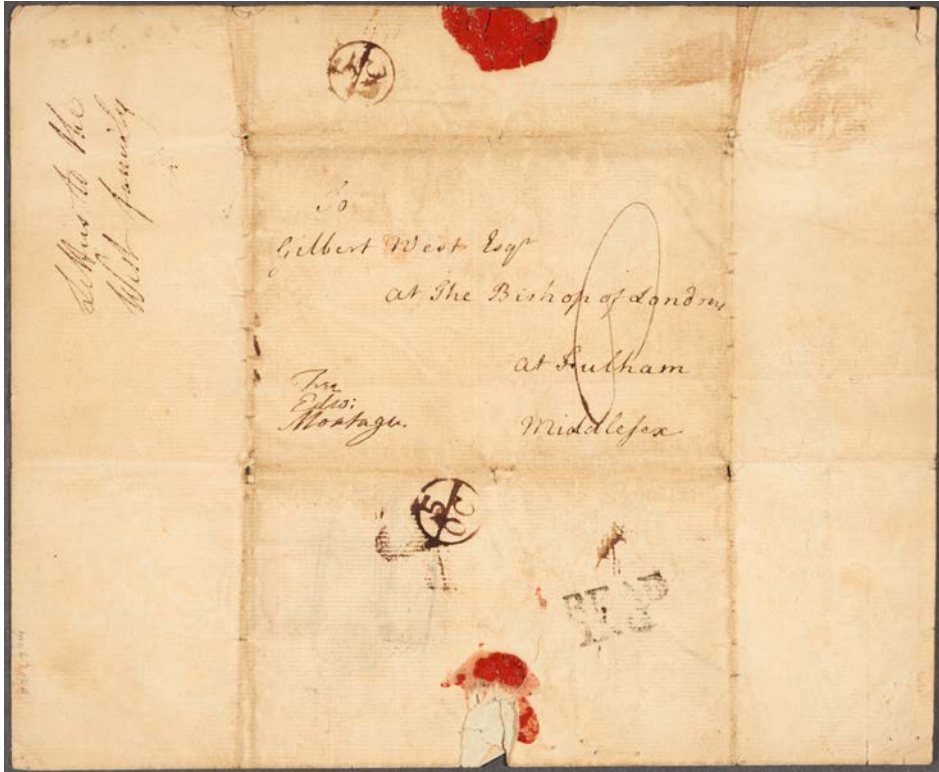 Letters to the
West family
To
Gilbert West Esqr
at The Bishop of Londons
at Fulham
Middlesex
Free
Edw:
Montagu.
5
OC
READ
ING